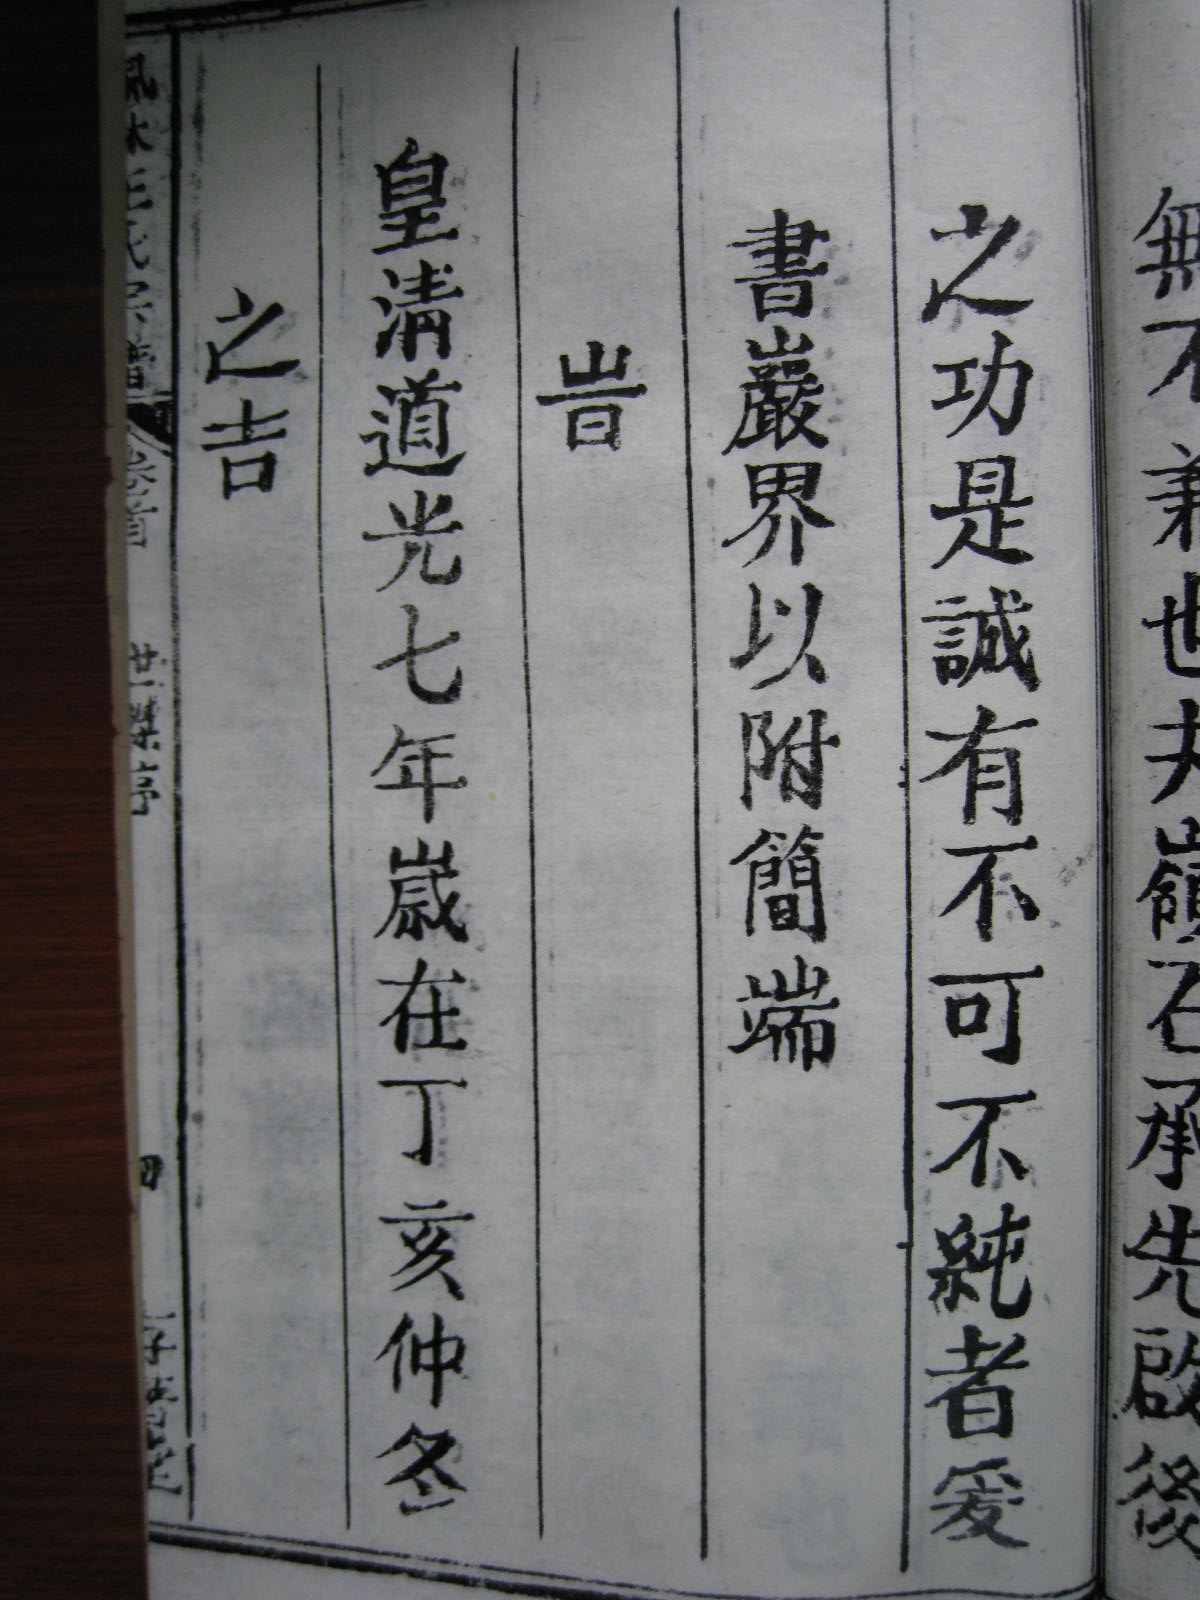 無不兼也夫嶺石承先啟後
之功是誠有不可不純者爰
書嚴界以附簡端
旹
皇清道光七年歲在丁亥仲冬
之吉
王氏宗譜 卷首
四